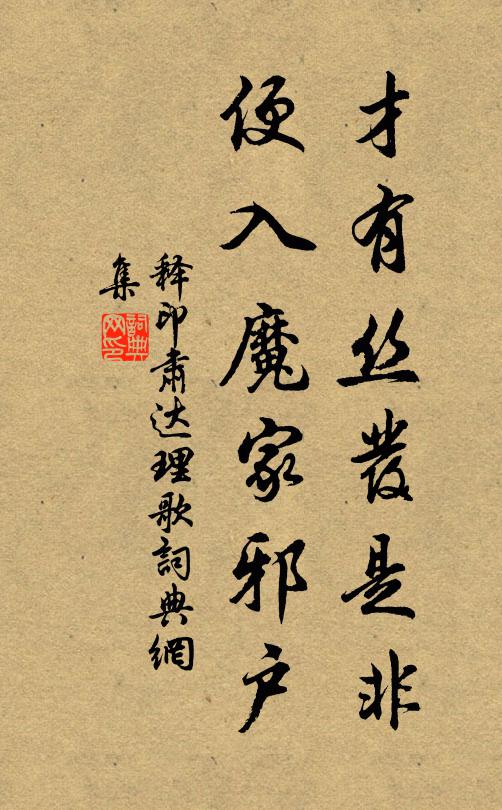 才有丝發是非
便入魔家邪户
释印肃达理歌詞典網
集
詞典网印